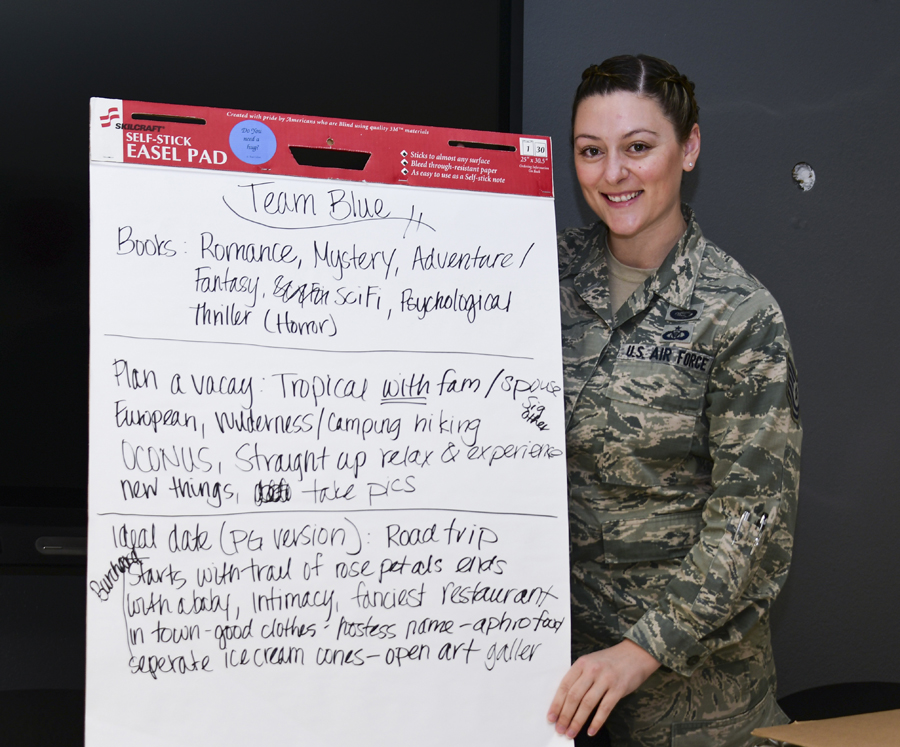 SKILCRAFT
SELF-STICK
EASEL PAD
Do You
need a
hug?
Created with pride by Americans who are Blind using quality 3M™ materials
Sticks to almost any surface
Bleed through-resistant paper
As easy to use as a Self-stick note
1 30
25" x 30.5"
Team Blue
Books: Romance, Mystery, Adventure/
Fantasy, SciFi, Psychological
Thriller (Horror)
Plan a vacay: Tropical with fam/spouse
Sig
other
European, Wilderness/Camping hiking
OCONUS, Straight up relax & experience
new things, take pics
Ideal date (PG version): Road trip
Burchard
Starts with trail of rose petals ends
with a baby, intimacy, fanciest restaurant
in town-good clothes-hostess name-aphro food
seperate ice cream cones-open art galler
U.S. AIR FORCE